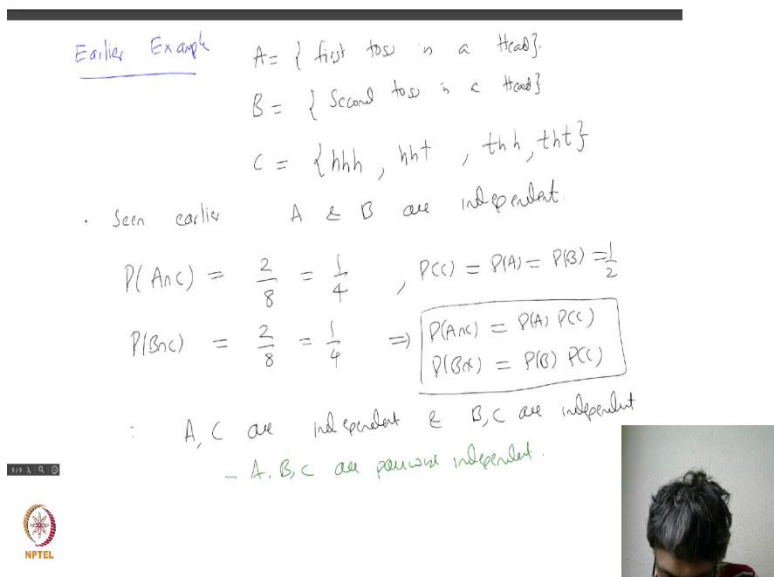 Earlier Example A = { first toss is a Head}.
B = { Second toss is a Head}
C = {hhh, hht, thh, tht}
· Seen earlier A & B are independent.
P(A∩C) = 2/8 = 1/4 , P(C) = P(A) = P(B) = 1/2
P(B∩C) = 2/8 = 1/4 ⇒ P(A∩C) = P(A) P(C)
P(B∩C) = P(B) P(C)
: A, C are independent & B, C are independent
- A, B, C are pairwise independent.
NPTEL